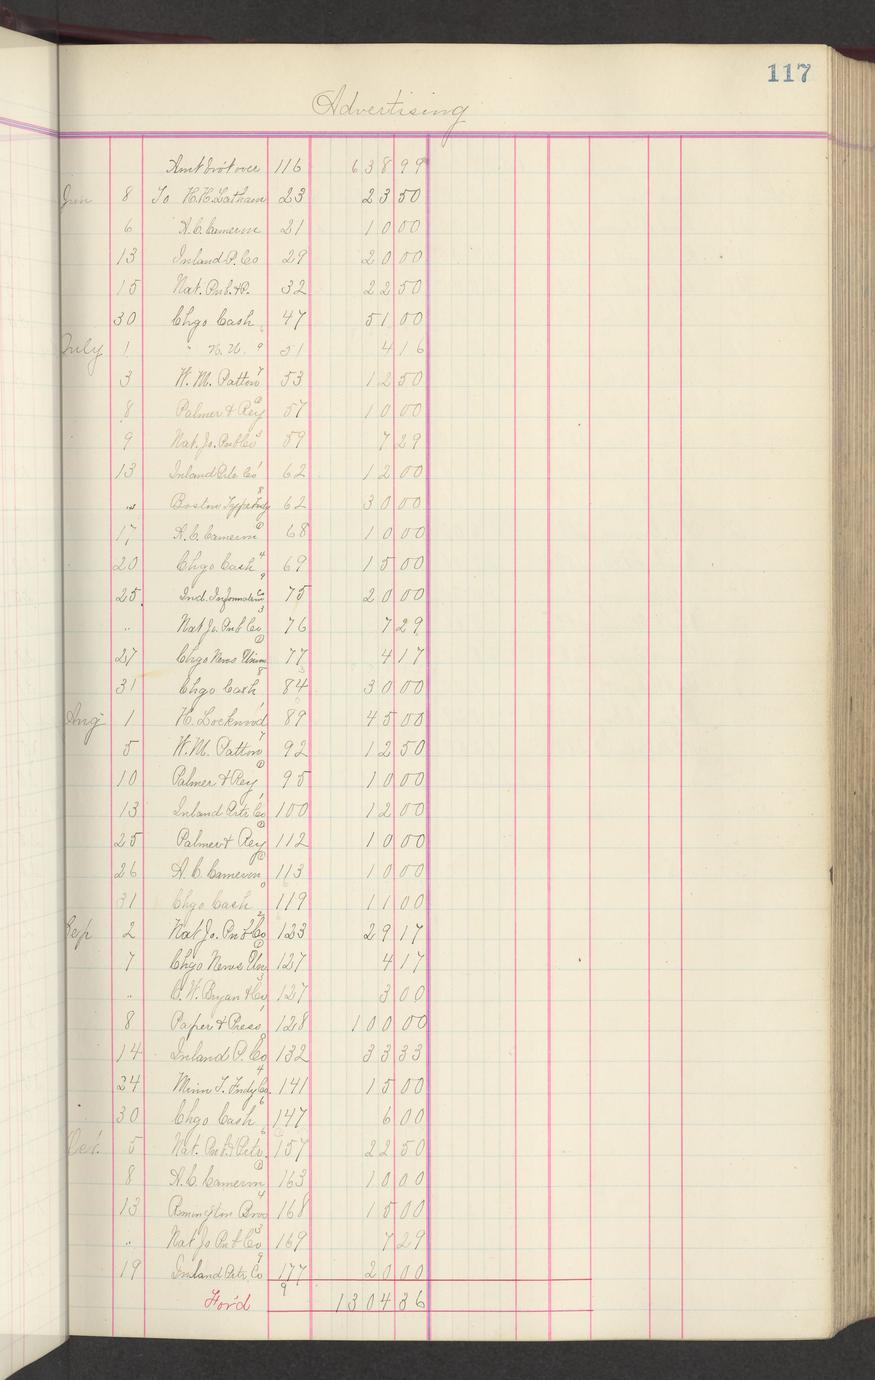 117
Advertising
Amt bro't over 116 638 99
Jun 8 To H.H. Latham 23 23 50
6 A.C. Cameron 21 10 00
13 Inland P. Co 29 20 00
15 Nat. Pub. & P. 32 22 50
30 Chgo Cash 47 51 00
July 1 " N.U. 9 51 4 16
3 W.M. Patton 7 53 12 50
8 Palmer & Rey 57 10 00
9 Nat. Jo. Pub Co 3 59 7 29
13 Inland Ptr Co 1 62 12 00
" Boston Type Fndy 8 62 30 00
17 A.C. Cameron 68 10 00
20 Chgo Cash 4 69 15 00
25 Ind. Information Co 9 75 20 00
" Nat Jo. Pub Co 3 76 7 29
27 Chgo News Union 77 4 17
31 Chgo Cash 8 84 30 00
Aug 1 H. Lockwood 89 45 00
5 W.M. Patton 7 92 12 50
10 Palmer & Rey 95 10 00
13 Inland Ptr Co 1 100 12 00
25 Palmer & Rey 112 10 00
26 A.C. Cameron 113 10 00
31 Chgo Cash 0 119 11 00
Sep 2 Nat Jo. Pub Co 2 123 29 17
7 Chgo News Un 127 4 17
" Bryan & Co 3 127 3 00
8 Paper & Press 1 128 100 00
14 Inland P. Co 132 33 33
24 Minn T. Fndy Co. 4 141 15 00
30 Chgo Cash 6 147 6 00
Oct. 5 Nat. Pub & Ptr. 6 157 22 50
8 A.C. Cameron 163 10 00
13 Remington Bros 4 168 15 00
" Nat Jo Pub Co 3 169 7 29
19 Inland Ptr Co 9 177 20 00
For'd 9 1304 36